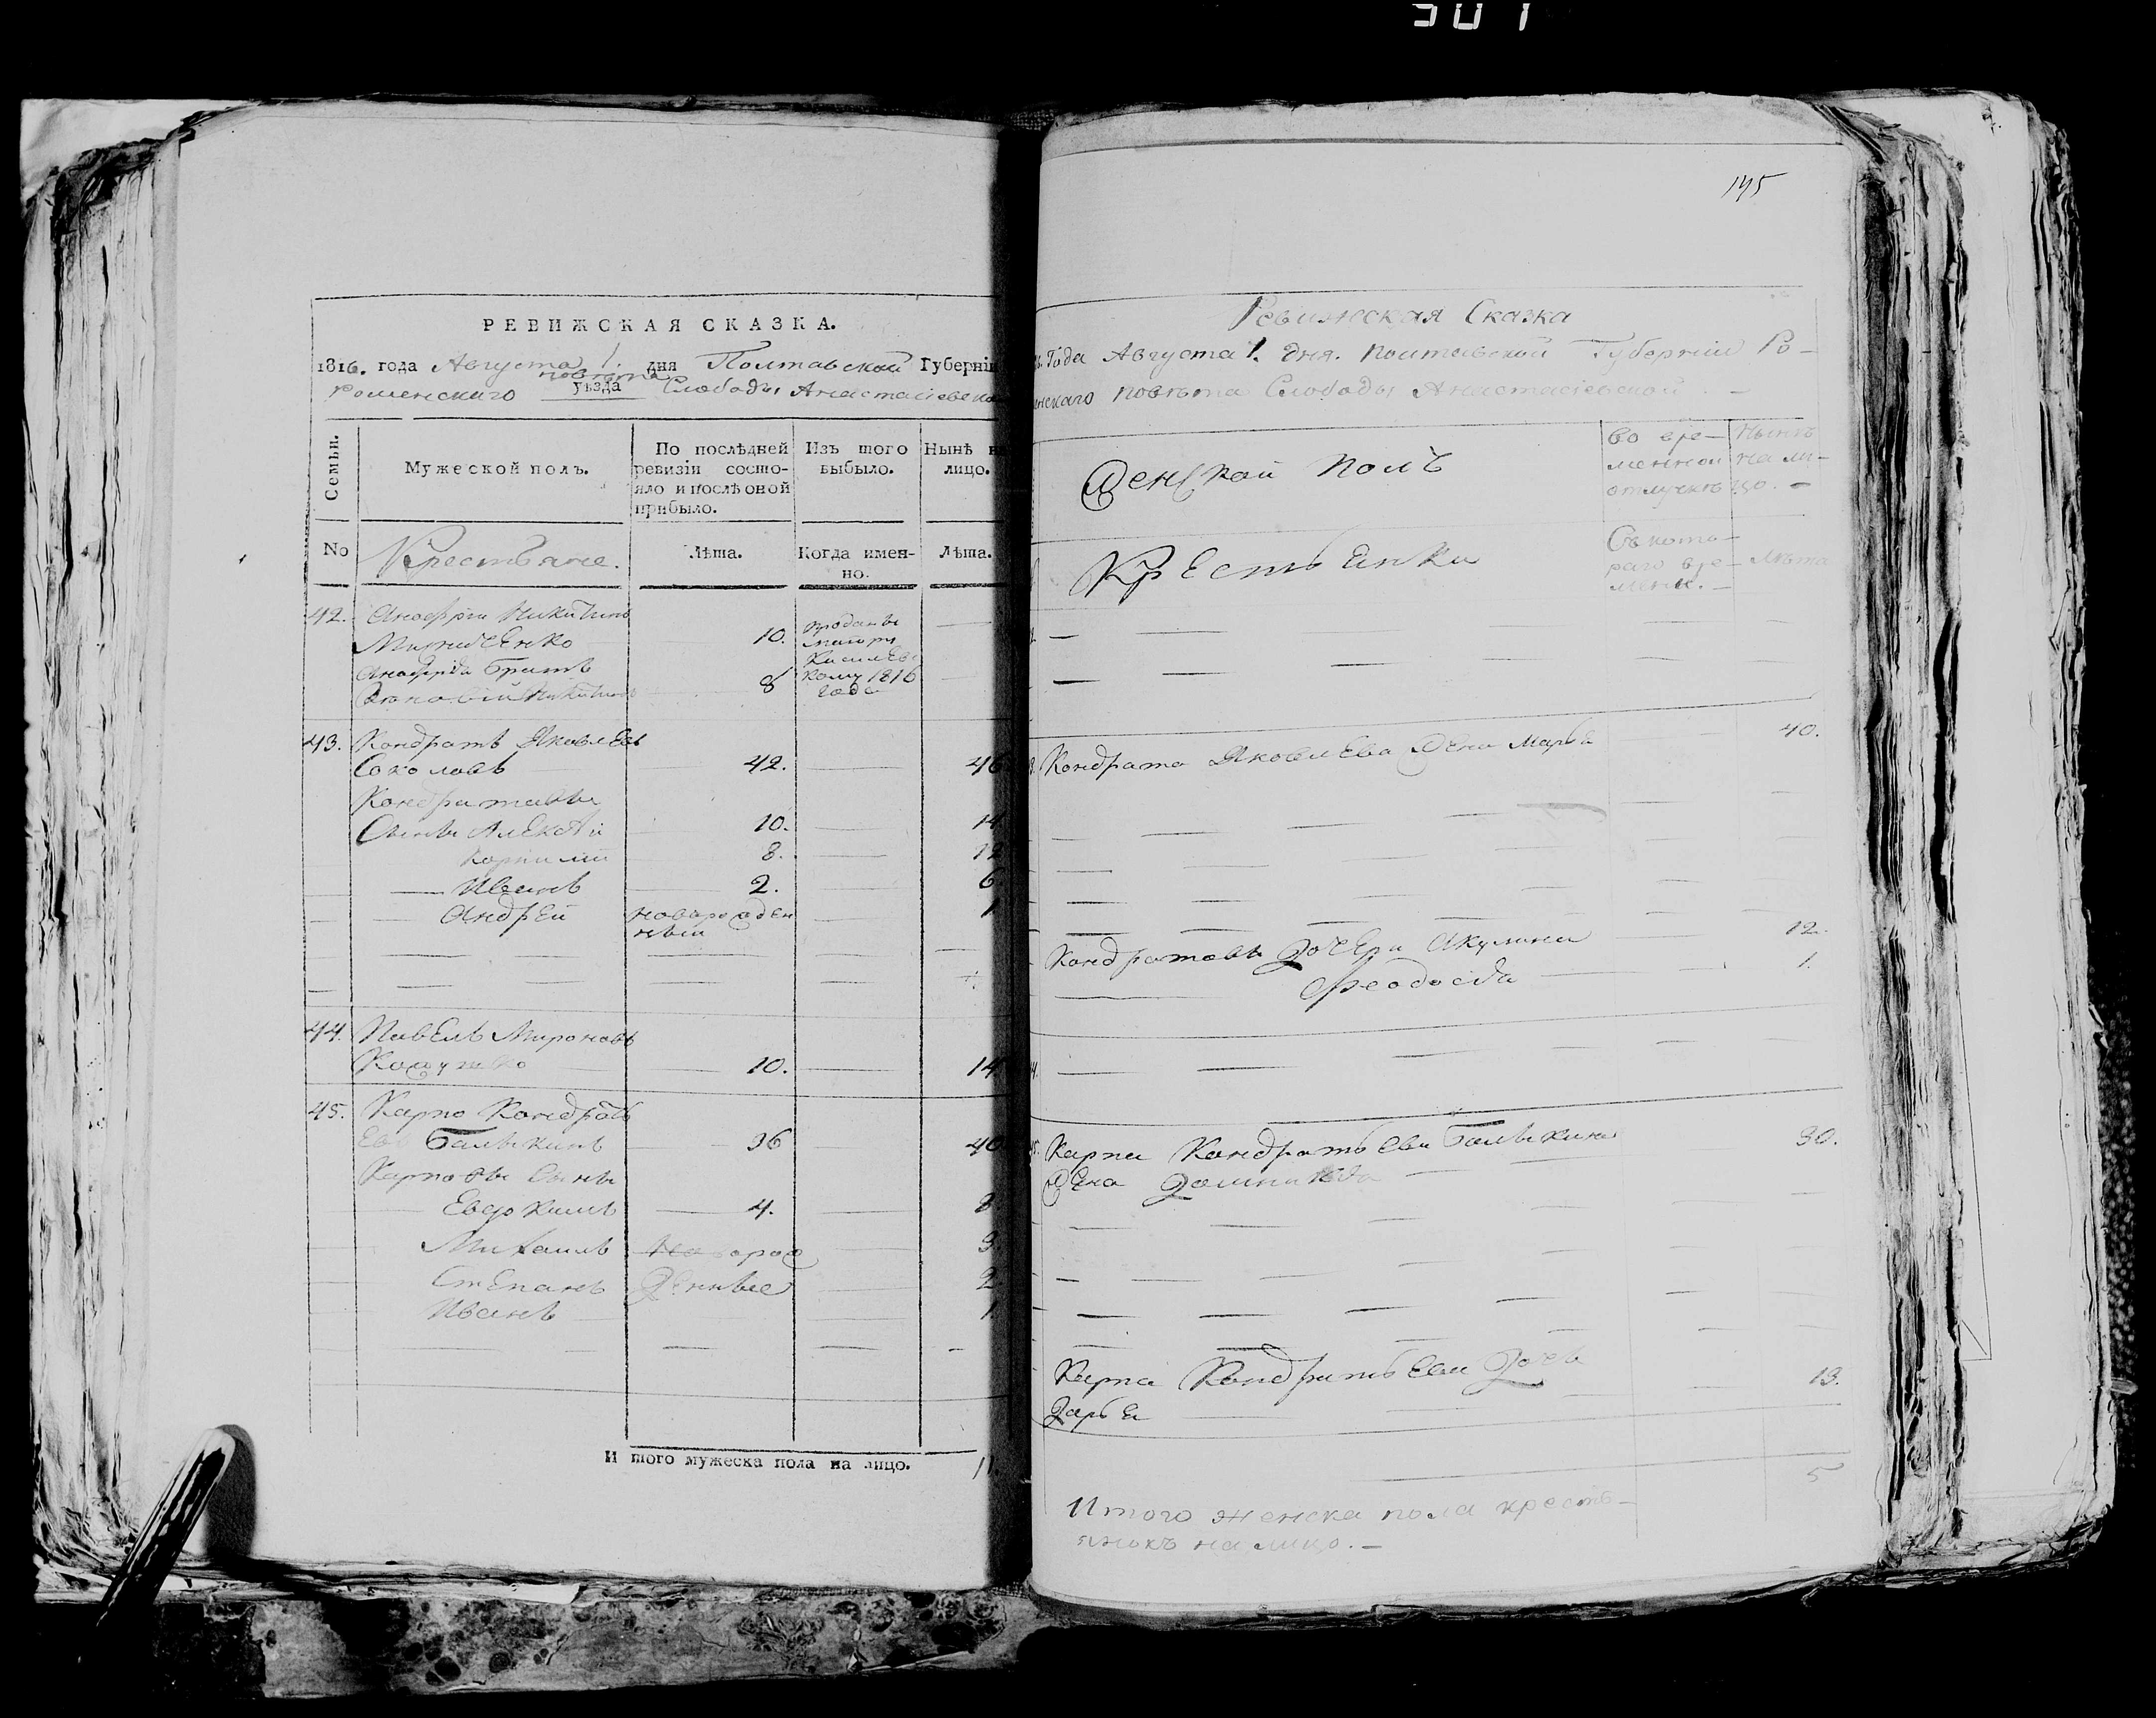 РЕВИЖСКАЯ СКАЗКА.
1816. года Августа 1. дня Полтавской Губерніи
повѣта
Роменскаго уѣзда Слободы Анастасіевско
Семьи.
Мужеской полъ.
По послѣдней ревизіи состо-
яло и послѣ оной
прибыло.
Изъ того
выбыло.
Нынѣ на
лицо.
No
Крестьяне.
Лѣта.
Когда имен-
но.
Лѣта.
42. Анофрій Никитинъ
10.
проданы
маіору
кому 1816
года
Анофрія братъ
8
43. Кондратъ Яковлевъ
Соколовъ 42. 46
Кондратовы
Сыны Алексѣй 10. 14
Корнилій 8. 12
Иванъ 2. 6
Андрей новорожден
ный 1
44. Павелъ Мироновъ
10. 14
45. Карпо Кондрать
евъ Балыкинъ 36 40
Карповы Сыны
Евдокимъ 4. 8
Михаилъ новорож 3
Степанъ денные 2
Иванъ 1
И того мужеска пола на лицо. 11.
145
Ревижская Сказка
Года Августа 1. дня. Полтавской Губерніи Ро-
менскаго повѣта Слободы Анастасіевской
Женской полъ
во вре-
менной
отлучкѣ
Нынѣ
на ли-
цо.
Крестьянки
Съ кото-
раго вре-
мени.
Лѣта
Кондрата Яковлева жена Марья 40.
Кондратовы дочери Акулина 12.
Феодосія 1.
45. Карпа Кондратьева Балыкина 30.
жена Домникія
Карпа Кондратьева дочь 13.
Дарья
5
Итого женска пола кресть-
янокъ на лицо.